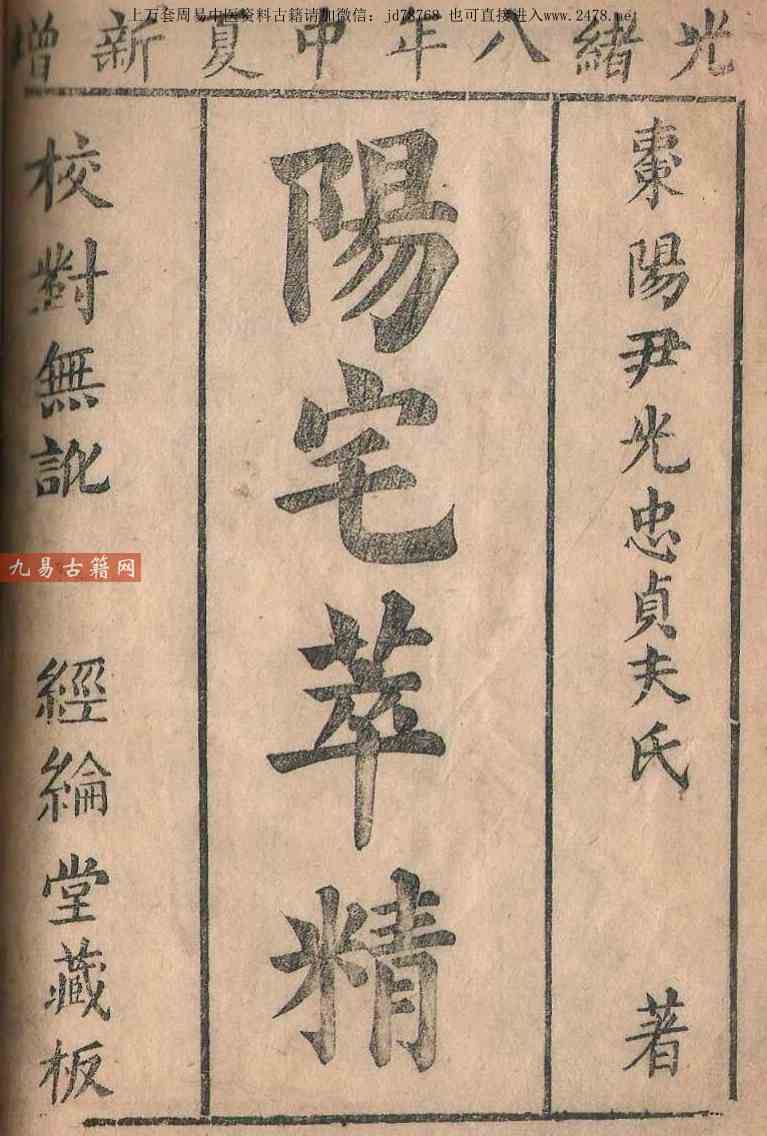 上万套周易中医资料古籍请加微信:jd78768 也可直接进入www.2478.net
光緒八年中夏新增
棗陽尹光忠貞夫氏 著
陽宅萃精
校對無訛 經綸堂藏板
九易古籍网